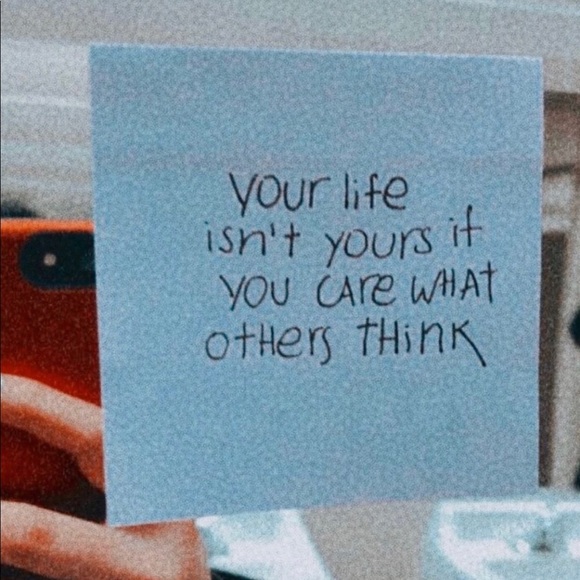 your life
isn't yours if
you care what
others think